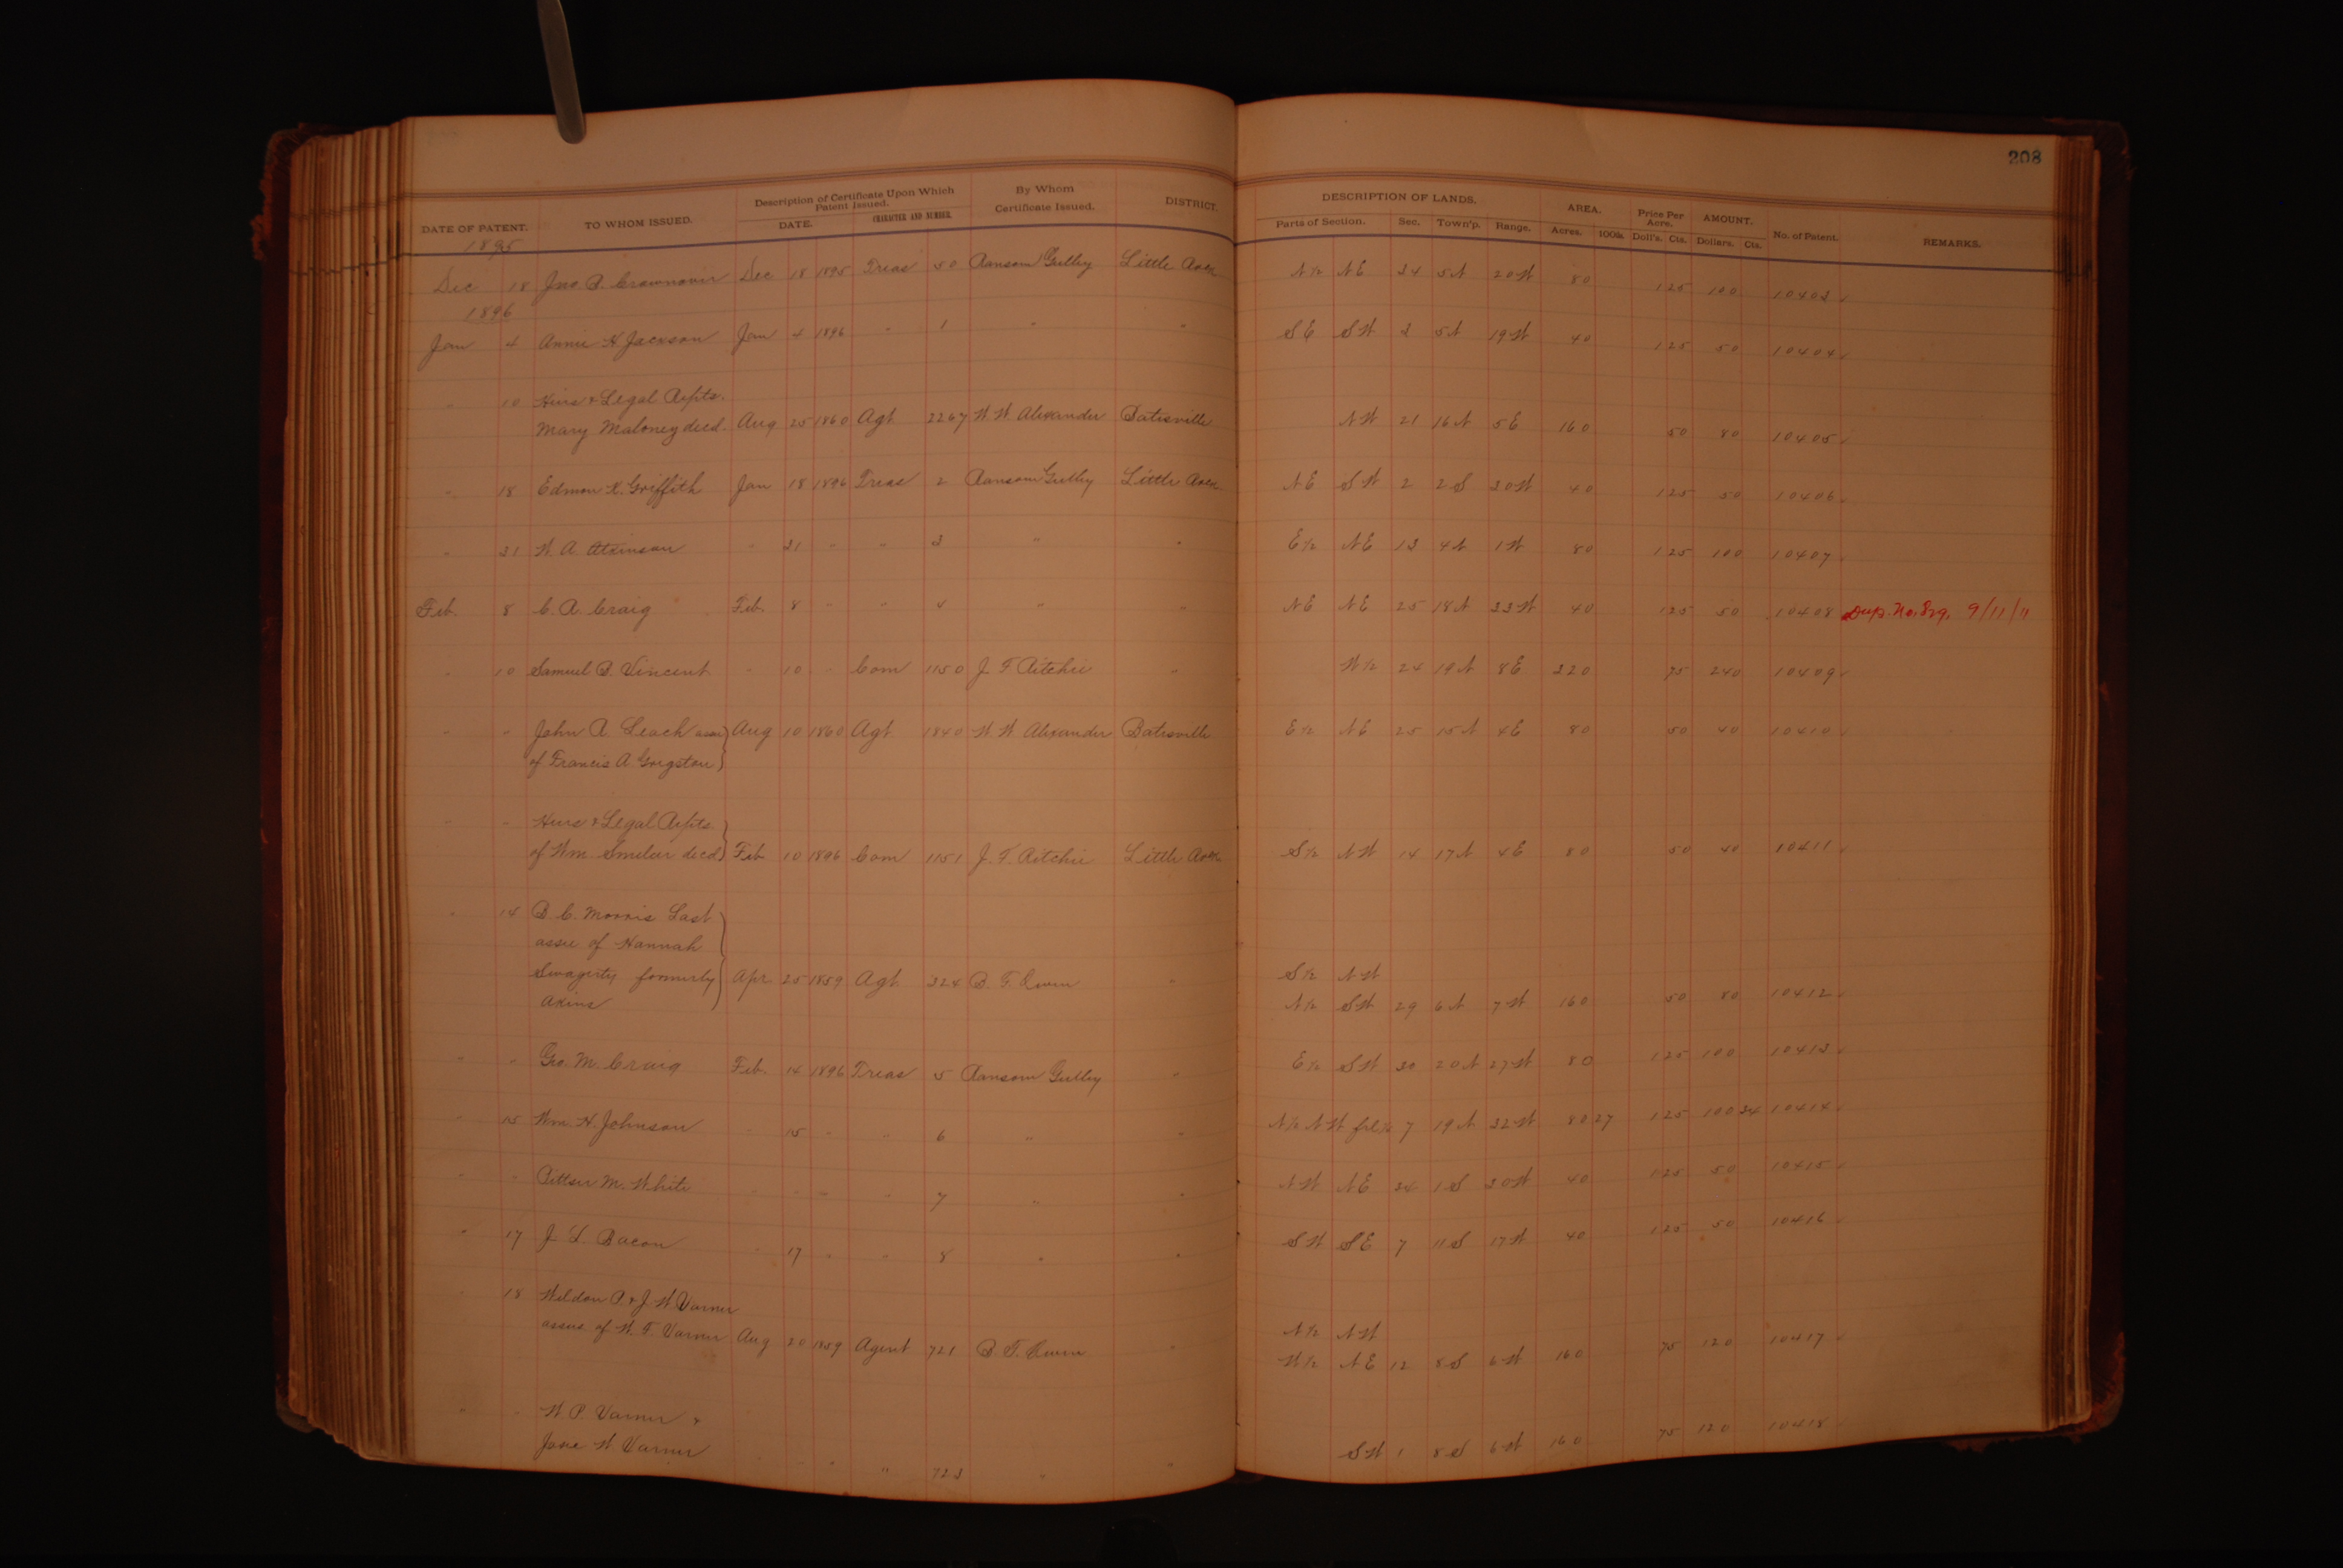 208
DATE OF PATENT. TO WHOM ISSUED. Description of Certificate Upon Which Patent Issued. DATE. CHARACTER AND NUMBER. By Whom Certificate Issued. DISTRICT. DESCRIPTION OF LANDS. Parts of Section. Sec. Town'p. Range. AREA. Acres. 100ths Price Per Acre. Doll's. Cts. AMOUNT. Dollars. Cts. No. of Patent. REMARKS.
1895
Dec 18 Jno. Dec 18 1895 Treas 50 Ransom Gulley Little Rock N½ NE 34 5N 20W 80 125 100 10403
1896
Jan 4 Annie H Jackson Jan 4 1896 " 1 " " SE SW 3 5N 19W 40 125 50 10404
" 10 Heirs & Legal Repts.
Mary Maloney decd. Aug 25 1860 Agt 2267 W. W. Alexander Batesville NW 21 16N 5E 160 50 80 10405
" 18 Edmon K. Griffith Jan 18 1896 Treas 2 Ransom Gulley Little Rock NE SW 2 2S 30W 40 125 50 10406
" 31 W. A. Atkinson " 31 " " 3 " " E½ NE 13 4N 1W 80 125 100 10407
Feb. 8 C. A. Craig Feb. 8 " " 4 " " NE NE 25 18N 33W 40 125 50 10408 Dup. No. 9/11/11
" 10 Samuel B. Vincent " 10 " Com 1150 J. F. Ritchie " W½ 24 19N 8E 320 75 240 10409
" " John R. Leach assee Aug 10 1860 Agt 1840 W W Alexander Batesville E½ NE 25 15N 4E 80 50 40 10410
of Francis A.
" " Heirs & Legal Repts.
of Wm. decd Feb 10 1896 Com 1151 J. F. Ritchie Little Rock S½ NW 14 17N 4E 80 50 40 10411
" 14 B. C. Morris Last
assee of Hannah
Swagerty formerly Apr. 25 1859 Agt. 324 B. F. Owen " S½ NW
Akins N½ SW 29 6N 7W 160 50 80 10412
" " Geo. M. Craig Feb. 14 1896 Treas 5 Ransom Gulley " E½ SW 30 20N 27W 80 125 100 10413
" 15 Wm. H. Johnson " 15 " " 6 " " N½ NW frl½ 7 19N 32W 80 27 125 100 34 10414
" " M. White " " " " 7 " " NW NE 34 1S 30W 40 125 50 10415
" 17 J. L. Bacon " 17 " " 8 " " SW SE 7 11S 17W 40 125 50 10416
" 18 Weldon P. & J. W. Varner N½ NW
assees of W. F. Varner Aug 20 1859 Agent 721 B. F. Owen " W½ NE 12 8S 6W 160 75 120 10417
" " W. P. Varner &
W Varner " " " " 723 " " SW 1 8S 6W 160 75 120 10418